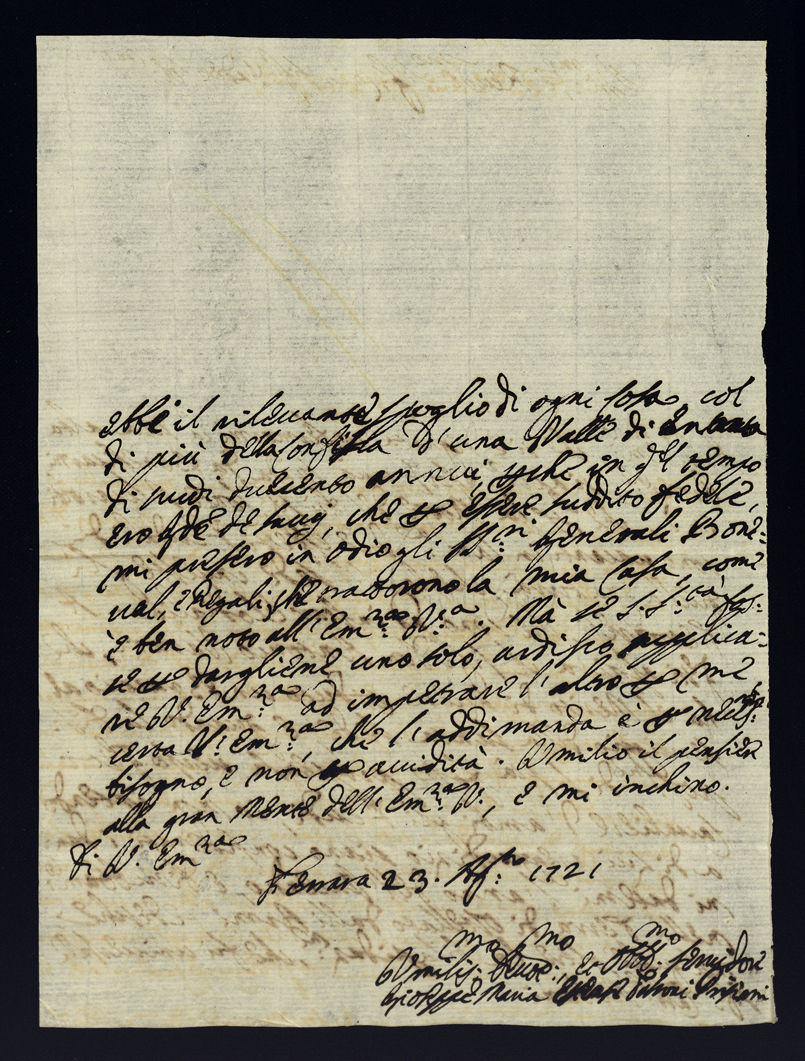 ebbe il rilevante spoglio di ogni cosa, col
di più della Confisca d'una Valle di entrata
di scudi duecento annui, che in q.el tempo
ero che per essere suddito fedele,
mi presero in odio gli SS.ri Generali Bone=
val, e Regali, che la mia Casa, come
è ben noto all'Em.za V.a. Mà se S. S.tà fos=
se per dargliene uno solo, ardisco supplica=
re V. Em.za ad impetrare l'altro per me
certa V. Em.za, che l'addimanda è per
bisogno, e non per avidità. Umilio il pensier
alla gran Mente dell'Em.za V., e mi inchino.
Di V. Em.za
Ferrara 23. Ag.to 1721
Umilis.mo Devo.mo, et Obb.mo Servidore
Gioseppe Maria Estense